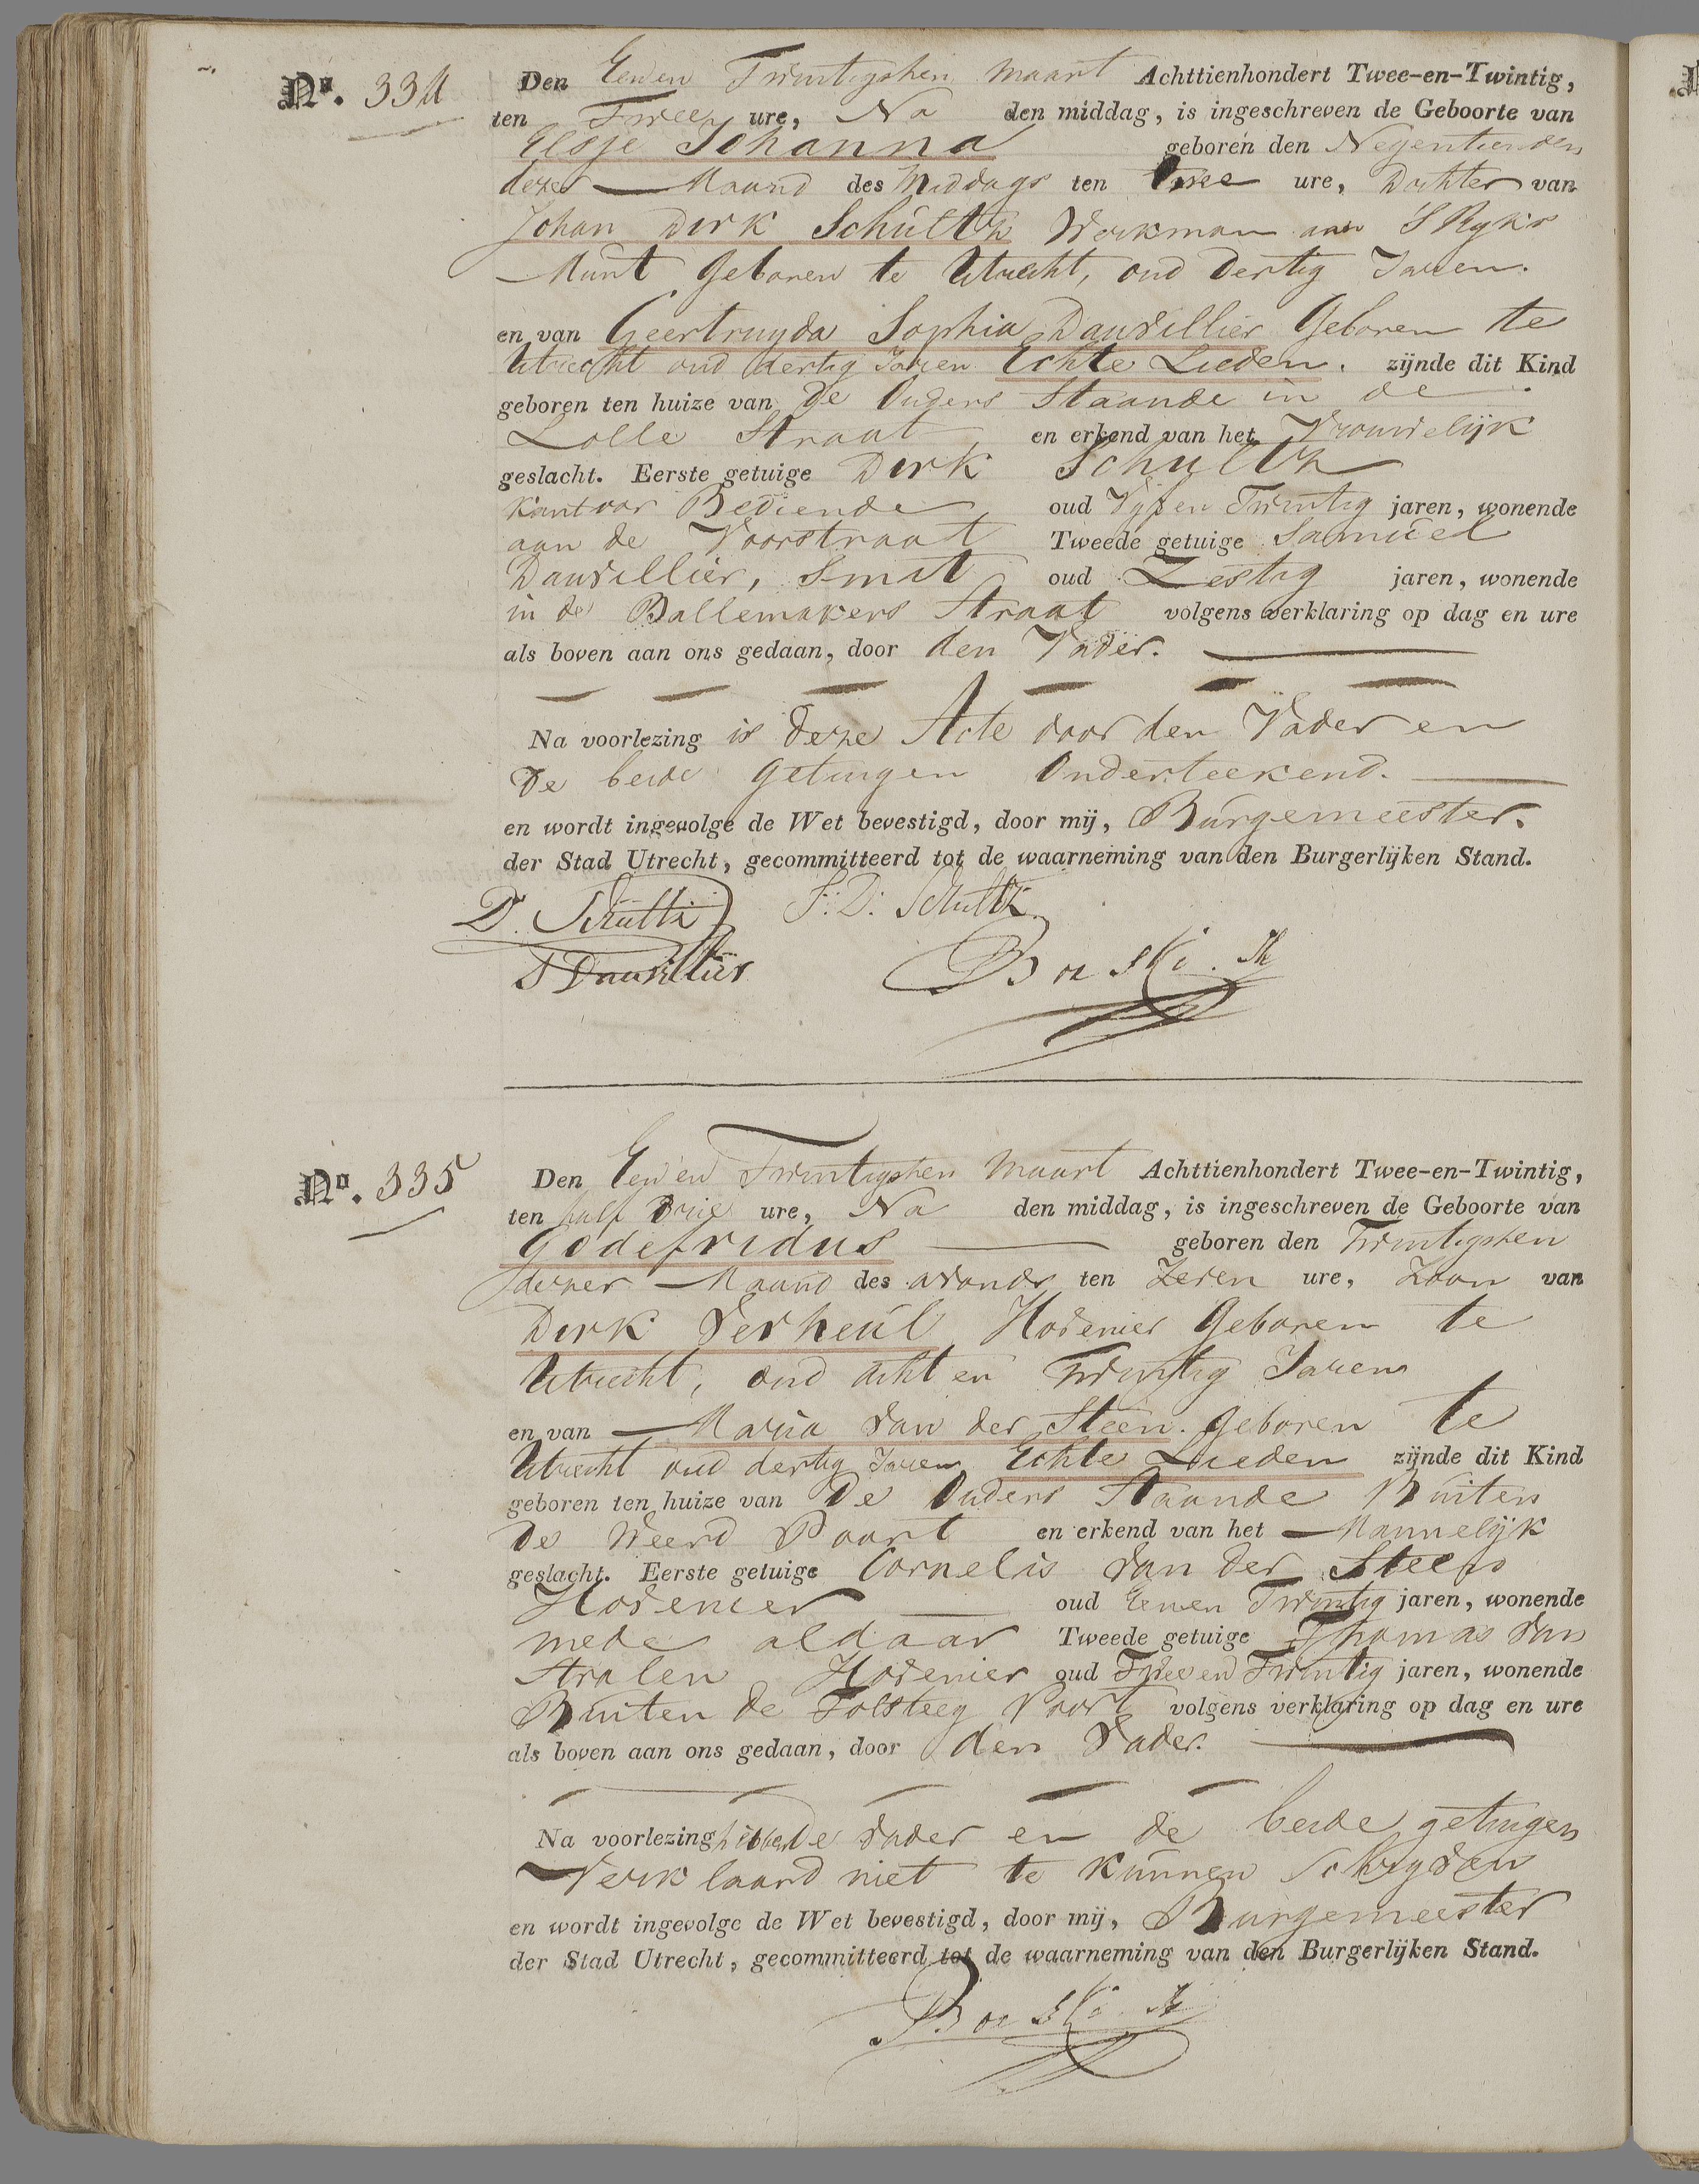 No. 334
Den Een en Twintigsten Maart Achttienhondert Twee-en-Twintig,
ten Twee ure, Na den middag, is ingeschreven de Geboorte van
Elsje Johanna geboren den Negentienden
dezer Maand des Middags ten Twee ure, Dochter van
Johan Dirk Schultz Werkman aan S Ryks
Munt Geboren te Utrecht, oud Dertig Jaren.
en van Geertruyda Sophia Dauvillier Geboren te
Utrecht oud dertig Jaren Echte Lieden. zijnde dit Kind
geboren ten huize van De Ouders Staande in de
Lolle Straat, en erkend van het Vrouwelijk
geslacht. Eerste getuige Dirk Schultz
Kantoor Bediende, oud Vyf en Twintig jaren, wonende
aan de Voorstraat Tweede getuige Samuel
Dauvillier, Smit oud Zestig jaren, wonende
in de Ballemakers Straat volgens verklaring op dag en ure
als boven aan ons gedaan, door den Vader.
Na voorlezing is deze Acte door den Vader en
De beide getuigen Onderteekend.
en wordt ingevolge de Wet bevestigd, door mij, Burgemeester.
der Stad Utrecht, gecommitteerd tot de waarneming van den Burgerlijken Stand.
D. Schultz J: D: Schultz
S Dauvillier
No. 335
Den Een en Twintigsten Maart Achttienhondert Twee-en-Twintig,
ten half Drie ure, Na den middag, is ingeschreven de Geboorte van
Godefridus geboren den Twintigsten
dezer Maand des avonds ten Zeven ure, Zoon van
Dirk Verheul Hovenier Geboren te
Utrecht, oud acht en Twintig Jaren
en van Maria van der Steen. Geboren te
Utrecht oud dertig Jaren Echte Lieden zijnde dit Kind
geboren ten huize van De Ouders Staande Buiten
De Weerd Poort en erkend van het Mannelijk
geslacht. Eerste getuige Cornelis van der Steen
Hovenier oud Een en Twintig jaren, wonende
mede aldaar Tweede getuige Thomas van
Stralen Hovenier oud Twee en Twintig jaren, wonende
Buiten de Tolsteeg Poort volgens verklaring op dag en ure
als boven aan ons gedaan, door den Vader.
Na voorlezing hebben De Vader en de beide getuigen
Verklaard niet te kunnen Schryven
en wordt ingevolge de Wet bevestigd, door mij, Burgemeester
der Stad Utrecht, gecommitteerd tot de waarneming van den Burgerlijken Stand.